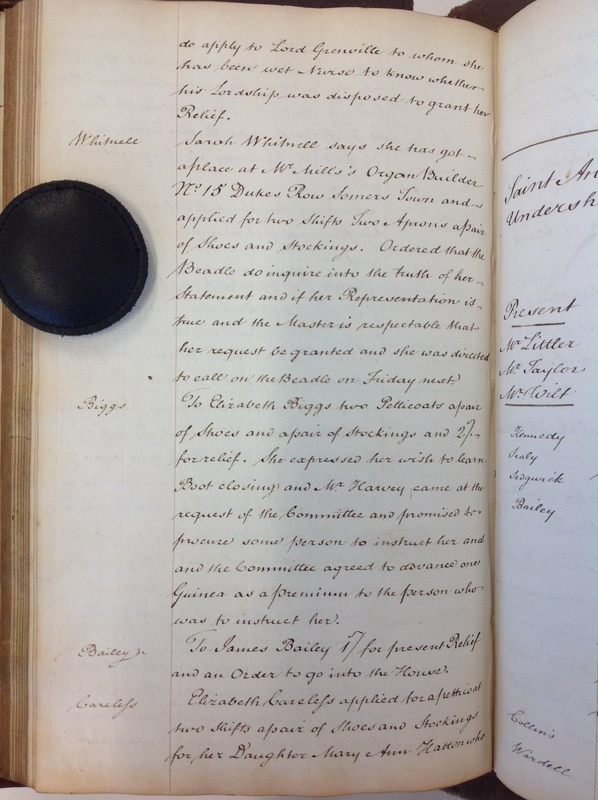 do apply to Lord Grenville to whom she
has been wet Nurse to know whether
his Lordship was disposed to grant her
Relief.
Whitnell
Sarah Whitnell says she has got
a place at Mr. Mills's Organ Builder
No. 15 Dukes Row Somers Town and
applied for two Shifts Two Aprons a pair
of Shoes and Stockings. Ordered that the
Beadle do inquire into the truth of her
Statement and if her Representation is
true and the Master is respectable that
her request be granted and she was directed
to call on the Beadle on Friday next
Biggs
To Elizabeth Biggs two Petticoats a pair
of Shoes and a pair of Stockings and 2/-
for relief. She expressed her wish to learn
Boot closing and Mr. Harvey came at the
request of the Committee and promised to
procure some person to instruct her and
and the Committee agreed to advance one
Guinea as a premium to the person who
was to instruct her.
Bailey Jr
To James Bailey 1/ for present Relief
and an Order to go into the House.
Careless
Elizabeth Careless applied for a petticoat
two Shifts a pair of Shoes and Stockings
for her Daughter Mary Ann Hatton who
Saint An
Undersh
Present
Mr. Littler
Mr. Taylor
Mr. Wilt
Kennedy
Sealy
Sedgwick
Bailey
Collins
Wardell